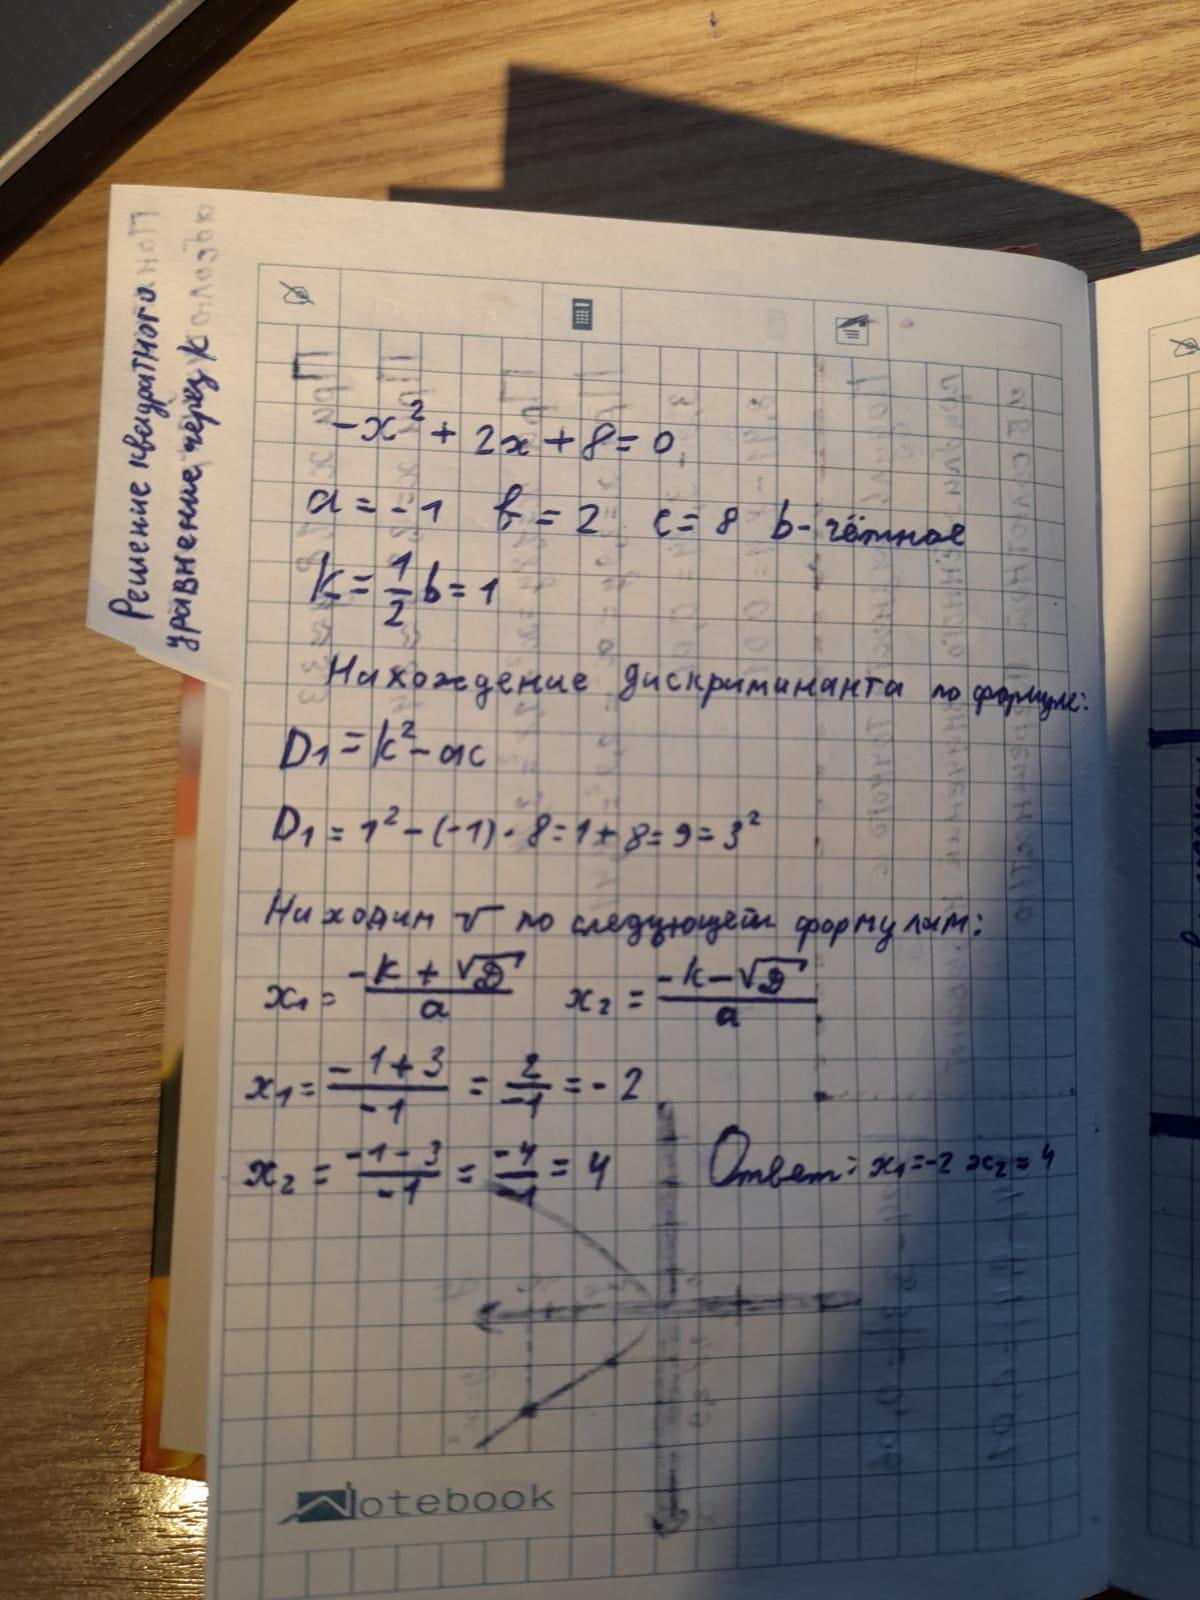 Решение квадратного
уравнение через k
-x² + 2x + 8 = 0
a = -1 b = 2 c = 8 b - чётное
k = 1/2 b = 1
Нахождение дискриминанта по формуле:
D₁ = k² - ac
D₁ = 1² - (-1) · 8 = 1 + 8 = 9 = 3²
Находим √ по следующей формулам:
x₁ = (-k + √D)/a x₂ = (-k - √D)/a
x₁ = (-1 + 3)/(-1) = 2/(-1) = -2
x₂ = (-1 - 3)/(-1) = (-4)/(-1) = 4 Ответ: x₁ = -2 x₂ = 4
Notebook